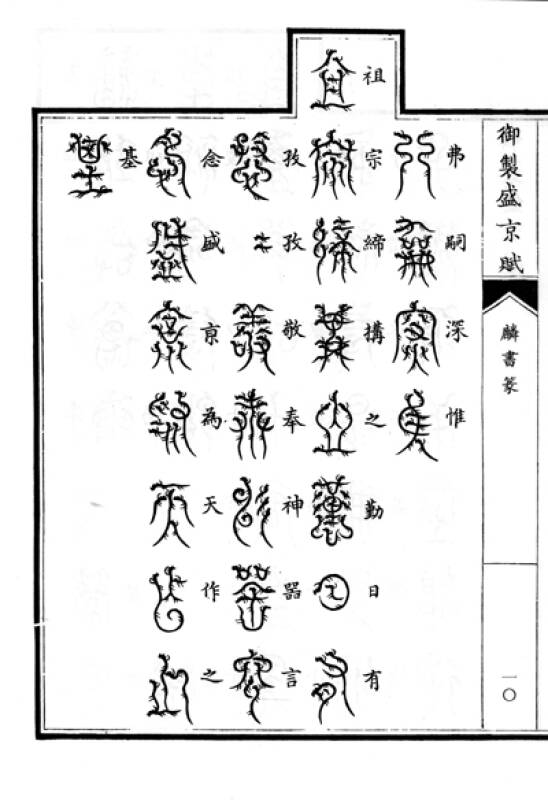 御製盛京賦
麟書篆
一〇
弗嗣深惟
祖宗締構之勤日有
孜孜敬奉神器言
念盛京為天作之
基